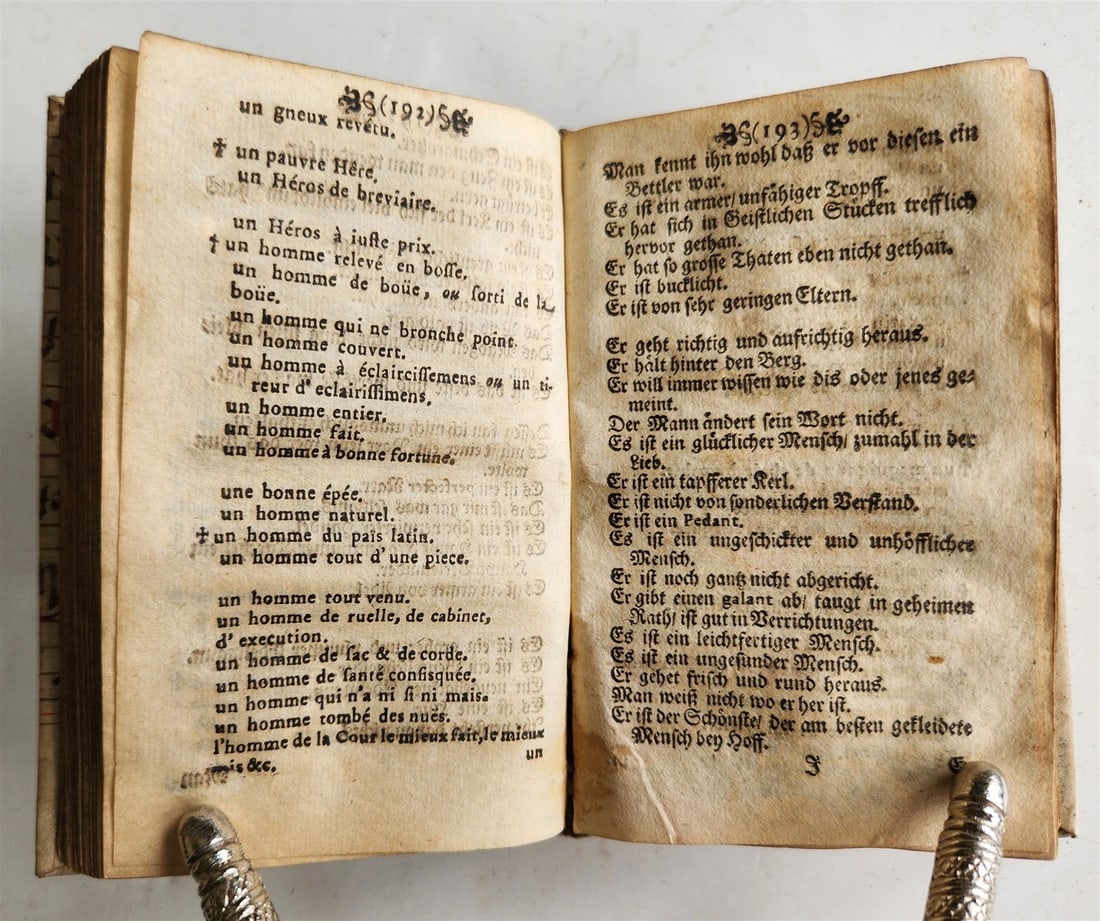 (192)
un gneux revétu.
† un pauvre Hêre.
un Héros de breviaire.
un Héros à iuste prix.
† un homme relevé en bosse.
un homme de boüe, ou sorti de la
boüe.
un homme qui ne bronche point.
un homme couvert.
un homme à éclaircissemens ou un ti-
reur d'eclairissimens.
un homme entier.
un homme fait.
un homme à bonne fortune.
une bonne épée.
un homme naturel.
† un homme du païs latin.
un homme tout d'une piece.
un homme tout venu.
un homme de ruelle, de cabinet,
d'execution.
un homme de sac & de corde.
un homme de santé confisquée.
un homme qui n'a ni si ni mais.
un homme tombé des nuës.
l'homme de la Cour le mieux fait, le mieux
mis &c.
un
(193)
Man kennt ihn wohl daß er vor diesen ein
Bettler war.
Es ist ein armer/ unfähiger Tropff.
Er hat sich in Geistlichen Stücken trefflich
hervor gethan.
Er hat so grosse Thaten eben nicht gethan.
Er ist bucklicht.
Er ist von sehr geringen Eltern.
Er geht richtig und aufrichtig heraus.
Er hält hinter den Berg.
Er will immer wissen wie dis oder jenes ge-
meint.
Der Mann ändert sein Wort nicht.
Es ist ein glücklicher Mensch/ zumahl in der
Lieb.
Er ist ein tapfferer Kerl.
Er ist nicht von sonderlichen Verstand.
Er ist ein Pedant.
Es ist ein ungeschickter und unhöfflicher
Mensch.
Er ist noch gantz nicht abgericht.
Er gibt einen galant ab/ taugt in geheimen
Rath/ ist gut in Verrichtungen.
Es ist ein leichtfertiger Mensch.
Es ist ein ungesunder Mensch.
Er gehet frisch und rund heraus.
Man weiß nicht wo er her ist.
Er ist der Schönste/ der am besten gekleidete
Mensch bey Hoff.
J